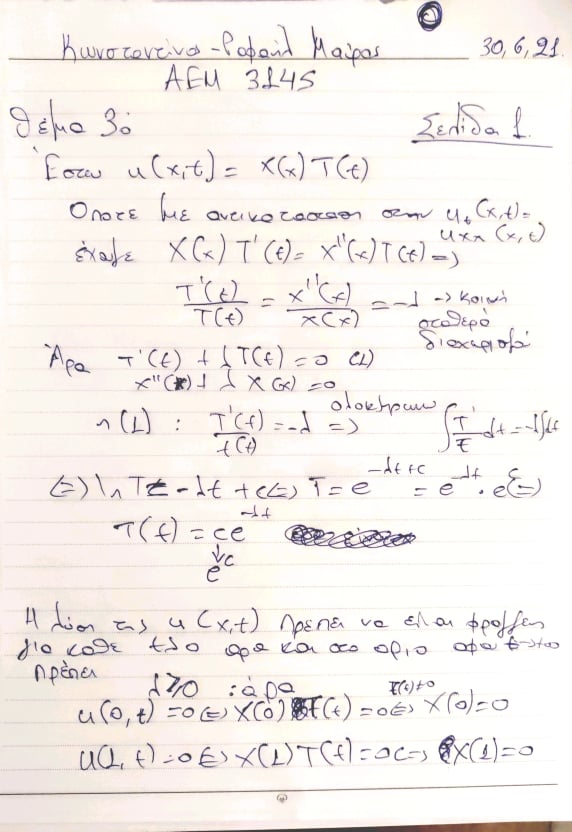 Κωνσταντίνος-Ραφαήλ Μαύρος 30,6,21.
ΑΕΜ 3145
Θέμα 3ο Σελίδα 1.
Έστω u(x,t) = X(x) T(t)
Οποτε με αντικατασταση στην u_t(x,t)=
u_xx(x,t)
έχουμε X(x) T'(t) = X''(x) T(t) =>
T'(t)/T(t) = X''(x)/X(x) = -λ -> κοινή
σταθερά
διαχωρισμού
Άρα T'(t) + λ T(t) = 0 (1)
X''(x) + λ X(x) = 0
η (1) : T'(t)/T(t) = -λ => ∫ T'/T dt = -λ∫dt
(=) ln T = -λt + c (=) T = e^{-λt+c} = e^{-λt} · e^c (=)
T(t) = ce^{-λt}
↓
e^c
Η λύση της u(x,t) πρέπει να είναι φραγμένη
για καθε t≥0 αρα και στο οριο αφου t->+∞
πρέπει
λ≥0 : άρα
u(0,t) = 0 (=) X(0) T(t) = 0 (=) X(0) = 0
T(t)≠0
u(1,t) = 0 (=) X(1) T(t) = 0 (=) X(1) = 0